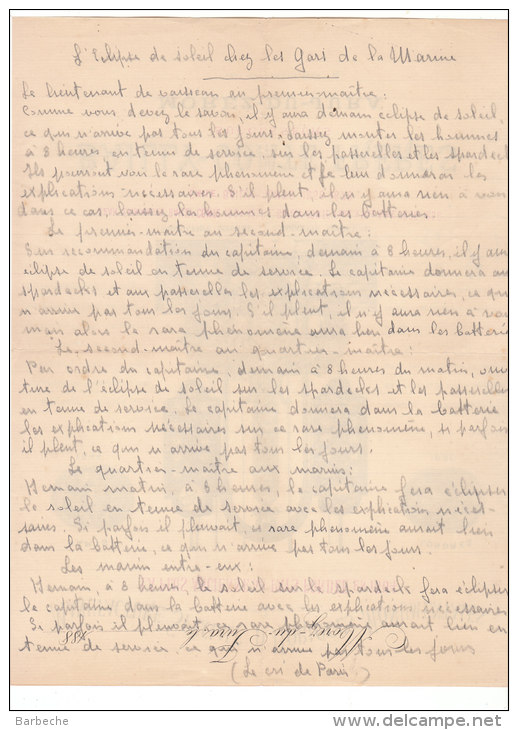 L'Eclipse de soleil chez les Gars de la Marine
Le lieutenant de vaisseau au premier-maître :
Comme vous devez le savoir, il y aura demain eclipse de soleil,
ce qui n'arrive pas tous les jours. Laissez monter les hommes
à 8 heures en tenue de service, sur les passerelles et les spardeck
Ils pourront voir le rare phénomène et je leur donnerai les
explications nécessaires. S'il pleut, il n'y aura rien à voir
dans ce cas, laissez les hommes dans les batteries.
Le premier-maître au second-maître :
Sur recommandation du capitaine, demain à 8 heures, il y aura
eclipse de soleil en tenue de service. Le capitaine donnera au
spardecks et aux passerelles les explications nécessaires, ce qui
n'arrive pas tous les jours. S'il pleut, il n'y aura rien à voir
mais alors le rare phénomène aura lieu dans les batteri
Le second-maître au quartier-maître :
Par ordre du capitaine, demain à 8 heures du matin, ouver
ture de l'éclipse de soleil sur les spardecks et les passerelles
en tenue de service. Le capitaine donnera dans la batterie
les explications nécessaires sur ce rare phénomène, si parfois
il pleut, ce qui n'arrive pas tous les jours.
Le quartier-maître aux marins :
Demain matin, à 8 heures, le capitaine fera s'éclipser
le soleil en tenue de service avec les explications néces-
saires. Si parfois il pleuvait, ce rare phénomène aurait lieu
dans la batterie, ce qui n'arrive pas tous les jours.
Les marins entre-eux :
Demain, à 8 heures, le soleil sur le spardeck fera éclipser
le capitaine dans la batterie avec les explications nécessaires
Si parfois il pleuvait, ce rare phénomène aurait lieu en
tenue de service ce qui n'arrive pas tous les jours
(Le cri de Paris)
Morez-du-Jura, le
188
Barbeche
www.delcampe.net